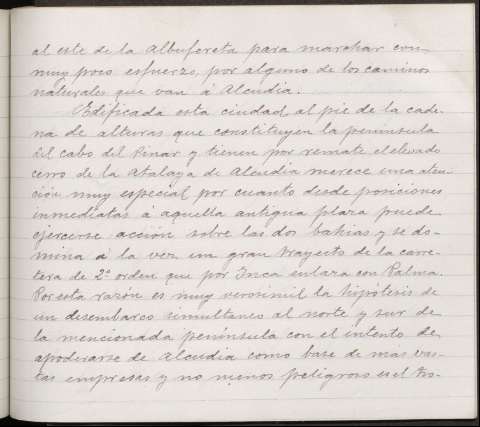 al este de la Albufereta para marchar con
muy poco esfuerzo, por alguno de los caminos
naturales que van á Alcudia.
Edificada esta ciudad al pie de la cade-
na de alturas que constituyen la península
del cabo del Pinar y tienen por remate el elevado
cerro de la Atalaya de Alcudia merece una aten-
ción muy especial por cuanto desde posiciones
inmediatas a aquella antigua plaza puede
ejercerse acción sobre las dos bahias y se do-
mina á la vez un gran trayecto de la carre-
tera de 2º orden que por Inca enlaza con Palma.
Por esta razón es muy verosimil la hipótesis de
un desembarco simultaneo al norte y sur de
la mencionada península con el intento de
apoderarse de Alcudia como base de mas vas-
tas empresas y no menos peligroso es el tro-